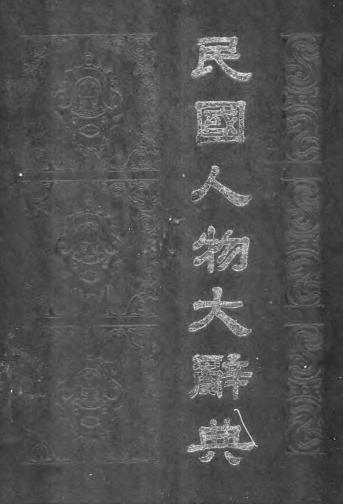 民國人物大辭典